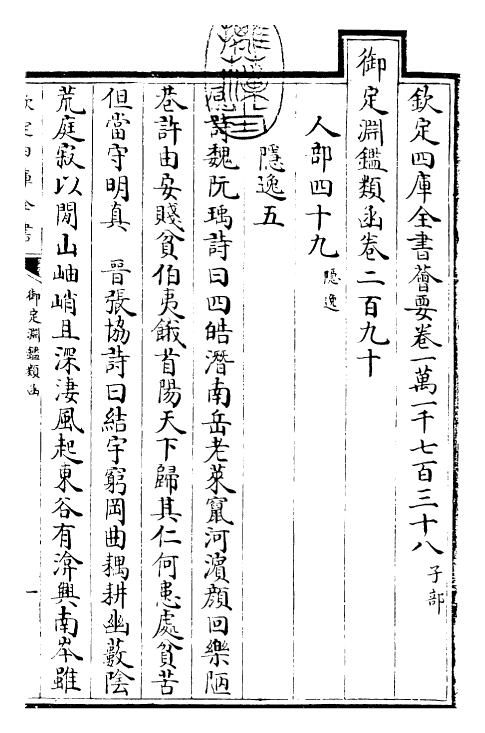 欽定四庫全書薈要卷一萬一千七百三十八 子部
御定淵鑑類函卷二百九十
人部四十九 隱逸
隱逸五
詩魏阮瑀詩曰四皓潛南岳老萊竄河濱顔回樂陋
巷許由安賤貧伯夷餓首陽天下歸其仁何患處貧苦
但當守明真 晉張協詩曰結宇窮岡曲耦耕幽藪陰
荒庭寂以閒山岫峭且深淒風起東谷有渰興南岑雖
欽定四庫全書
御定淵鑑類函
一